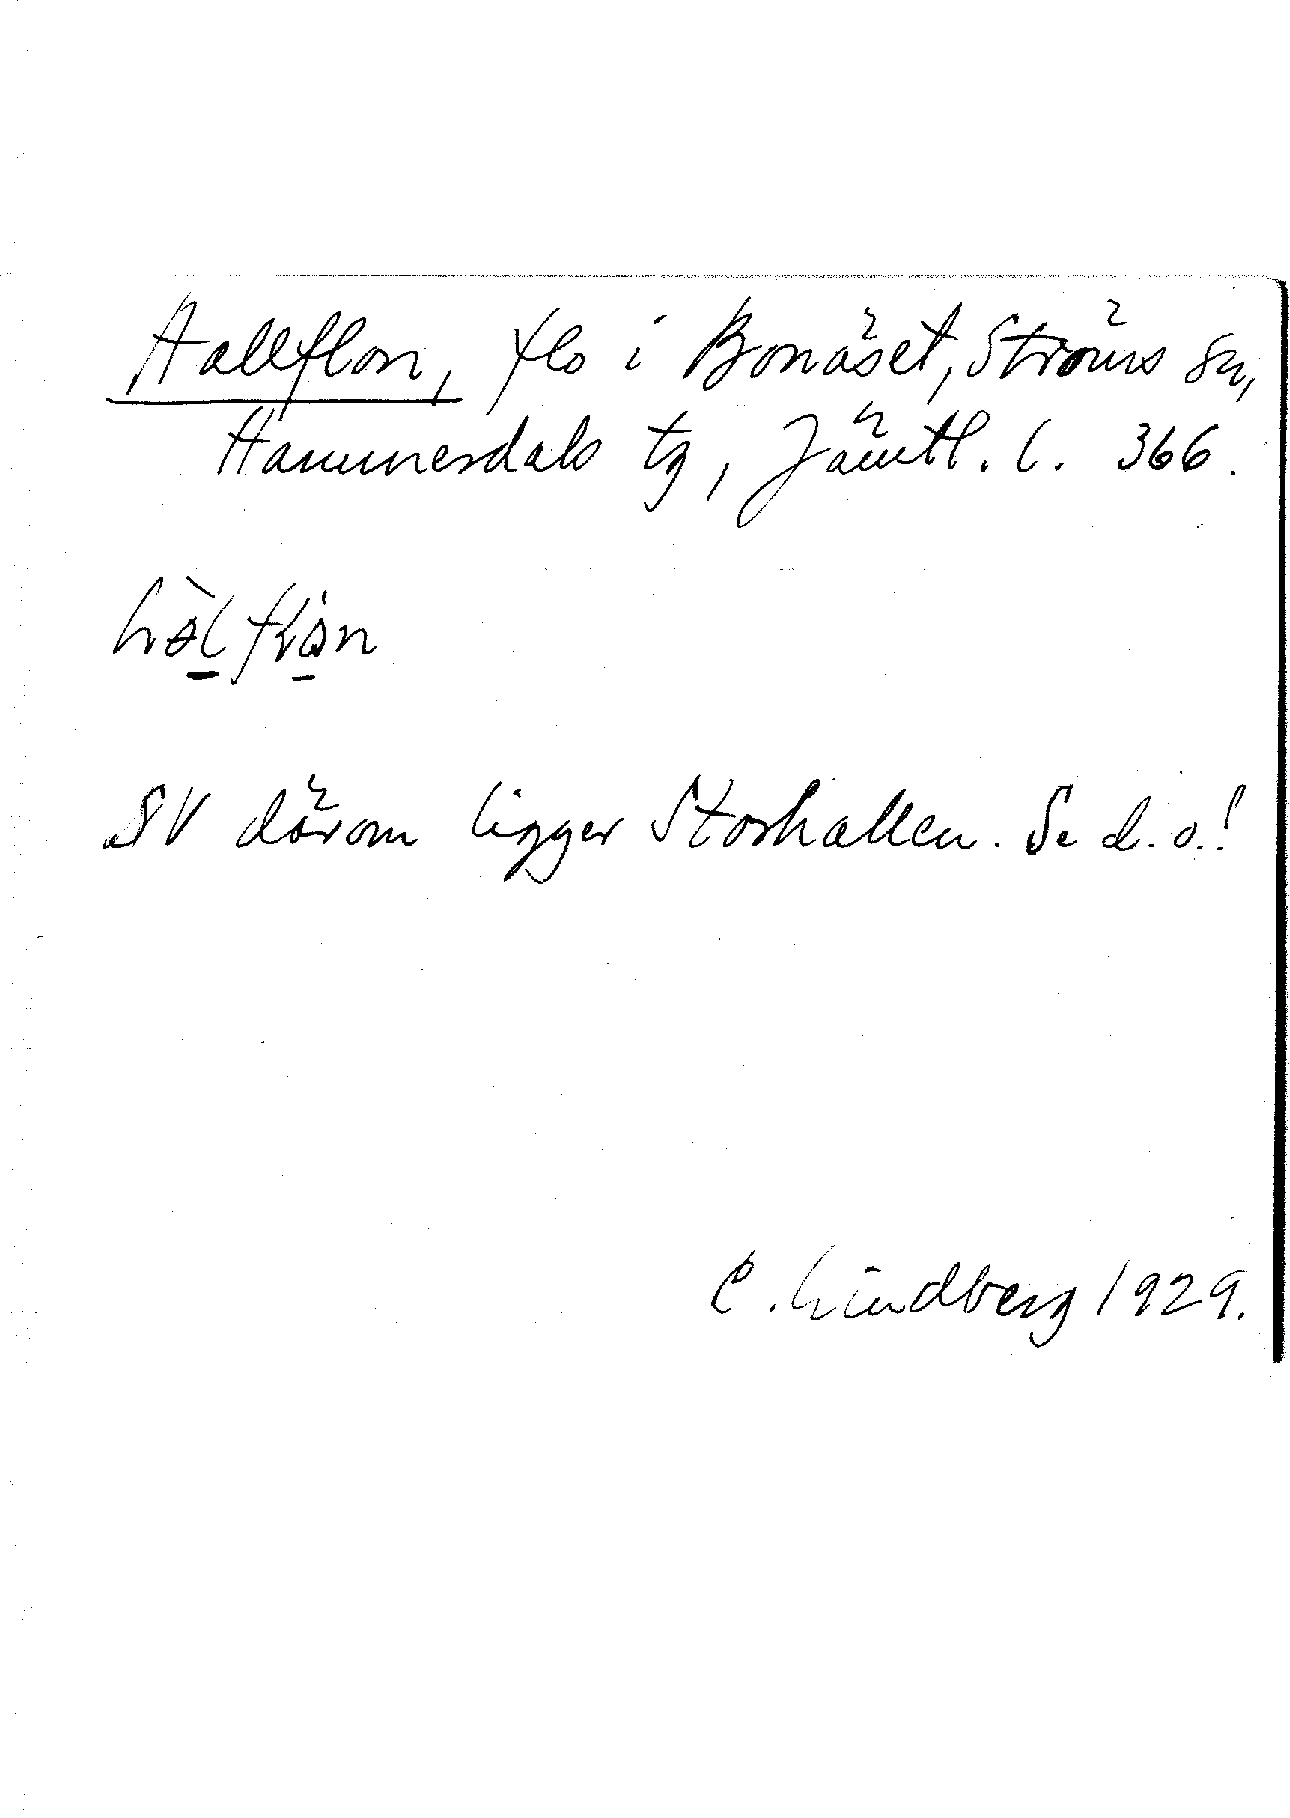 Hallflon, flo i Bonäset, Ströms sn,
Hammerdals tg, Jämtl. l. 366.
SV därom ligger Storhallen. Se d. o.!
C. Lindberg 1929.